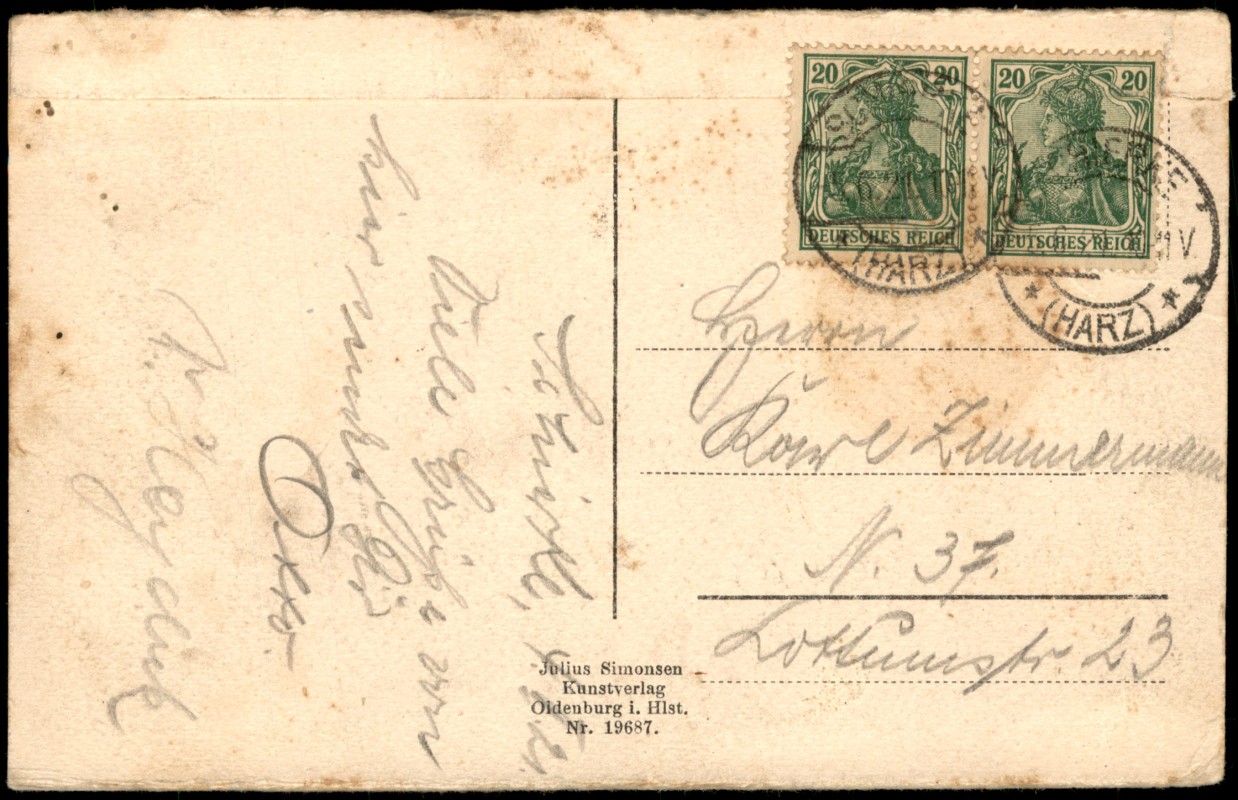 20 20
DEUTSCHES REICH
20 20
DEUTSCHES REICH
SCHIERKE
(HARZ)
SCHIERKE
(HARZ)
Herrn
Karl Zimmermann
N. 37.
Lottumstr. 23
Schierke,
Viele Grüße von
hier sendet
Otto
Julius Simonsen
Kunstverlag
Oldenburg i. Hlst.
Nr. 19687.